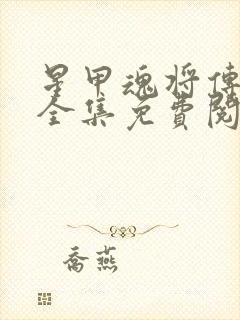 星甲魂将傳
全集免費閱
喬燕